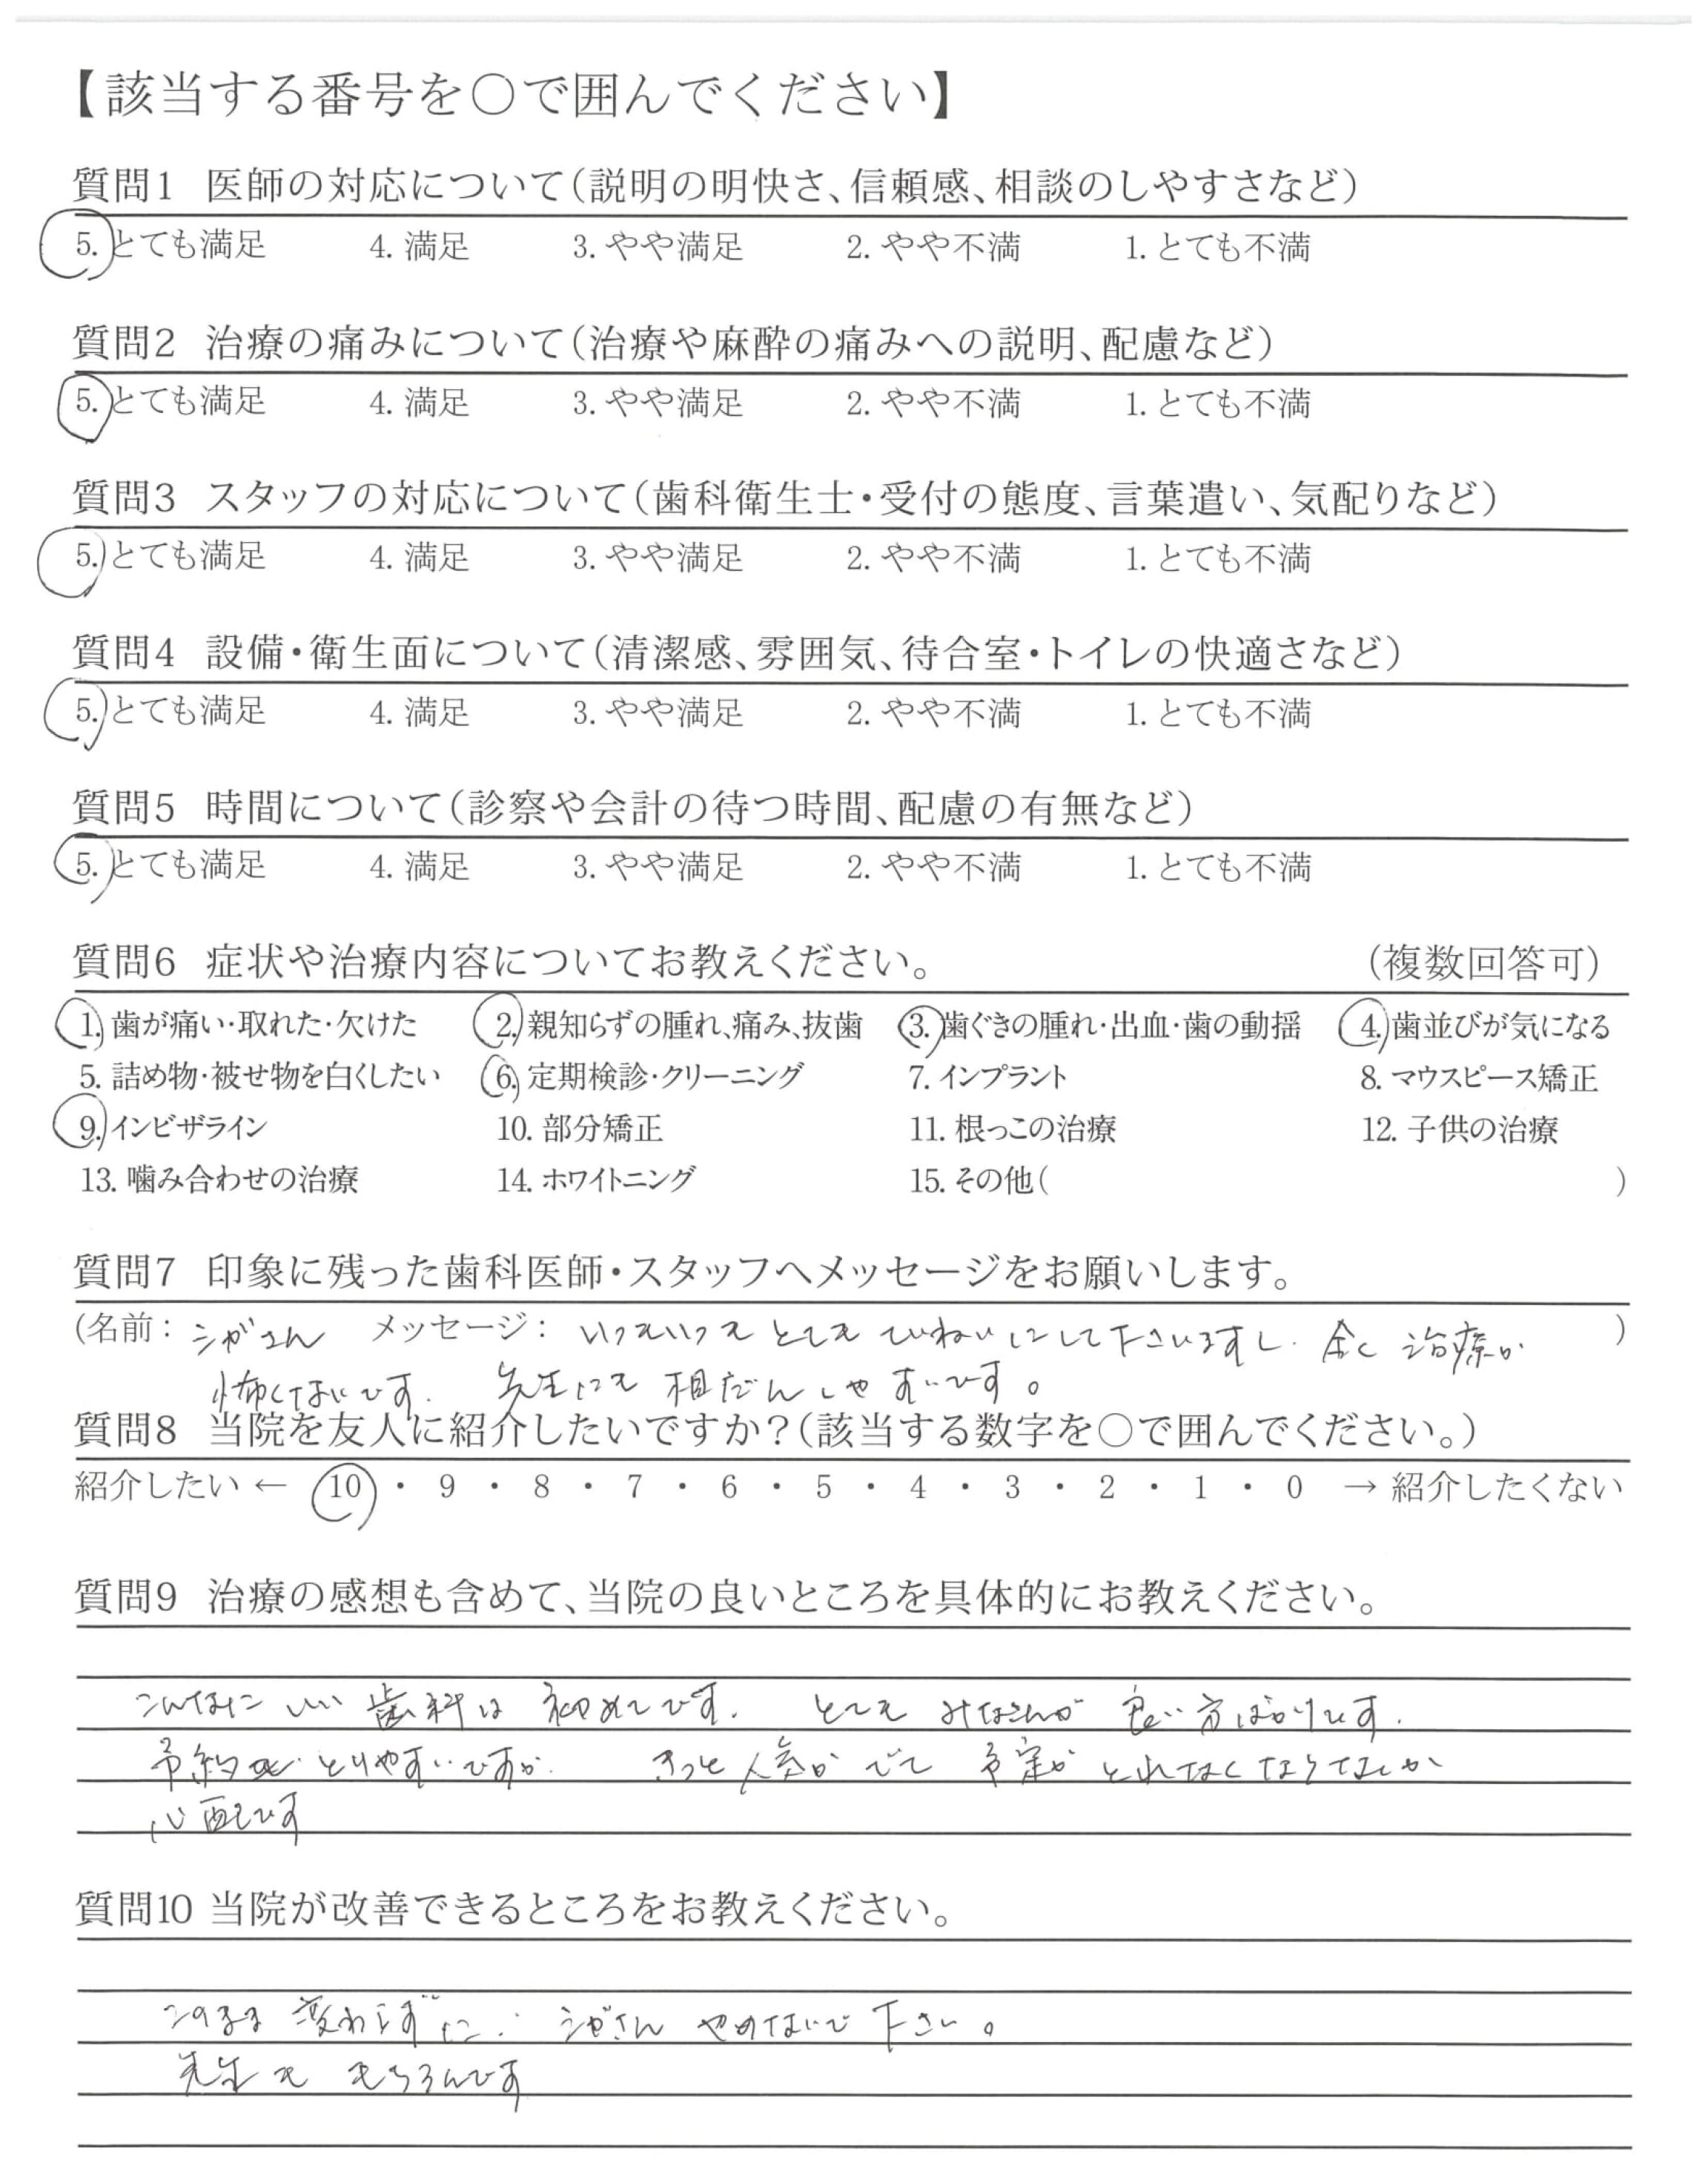 【該当する番号を○で囲んでください】
質問1 医師の対応について（説明の明快さ、信頼感、相談のしやすさなど）
5. とても満足 4. 満足 3. やや満足 2. やや不満 1. とても不満
質問2 治療の痛みについて（治療や麻酔の痛みへの説明、配慮など）
5. とても満足 4. 満足 3. やや満足 2. やや不満 1. とても不満
質問3 スタッフの対応について（歯科衛生士・受付の態度、言葉遣い、気配りなど）
5. とても満足 4. 満足 3. やや満足 2. やや不満 1. とても不満
質問4 設備・衛生面について（清潔感、雰囲気、待合室・トイレの快適さなど）
5. とても満足 4. 満足 3. やや満足 2. やや不満 1. とても不満
質問5 時間について（診察や会計の待つ時間、配慮の有無など）
5. とても満足 4. 満足 3. やや満足 2. やや不満 1. とても不満
質問6 症状や治療内容についてお教えください。 （複数回答可）
1. 歯が痛い・取れた・欠けた 2. 親知らずの腫れ、痛み、抜歯 3. 歯ぐきの腫れ・出血・歯の動揺 4. 歯並びが気になる
5. 詰め物・被せ物を白くしたい 6. 定期検診・クリーニング 7. インプラント 8. マウスピース矯正
9. インビザライン 10. 部分矯正 11. 根っこの治療 12. 子供の治療
13. 噛み合わせの治療 14. ホワイトニング 15. その他（ ）
質問7 印象に残った歯科医師・スタッフへメッセージをお願いします。
（名前： シガさん メッセージ： いつもいつも とても ていねいにして下さいますし. 全く 治療が ）
怖くないです. 先生にも 相だんしやすいです。
質問8 当院を友人に紹介したいですか？（該当する数字を○で囲んでください。）
紹介したい ← 10 ・ 9 ・ 8 ・ 7 ・ 6 ・ 5 ・ 4 ・ 3 ・ 2 ・ 1 ・ 0 → 紹介したくない
質問9 治療の感想も含めて、当院の良いところを具体的にお教えください。
こんなに いい 歯科は 初めてです. とても みなさんが 良い方ばかりです.
予約も とりやすいですが. きっと 人気が でて 予定が とれなくならないか
心配です
質問10 当院が改善できるところをお教えください。
このまま 変わらずに. シガさん やめないで 下さい。
先生も もちろんです